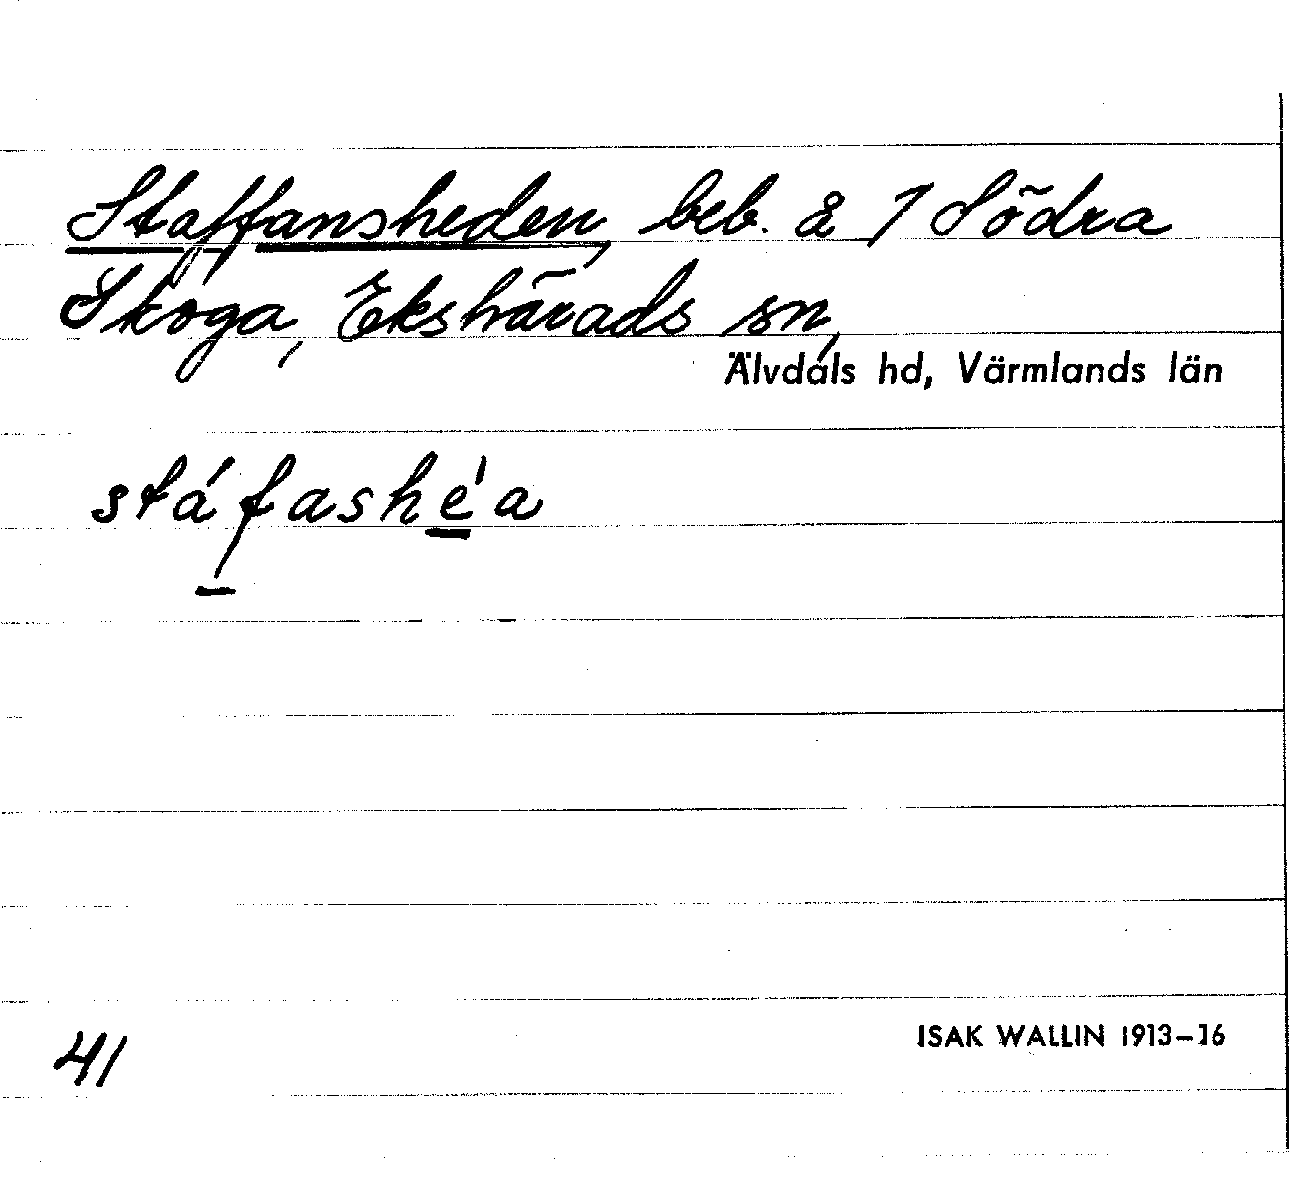 Staffansheden, beb. å 1 Södra
Skoga, Ekshärads sn,
Älvdals hd, Värmlands län
stáfashe̲'a
41
ISAK WALLIN 1913–16